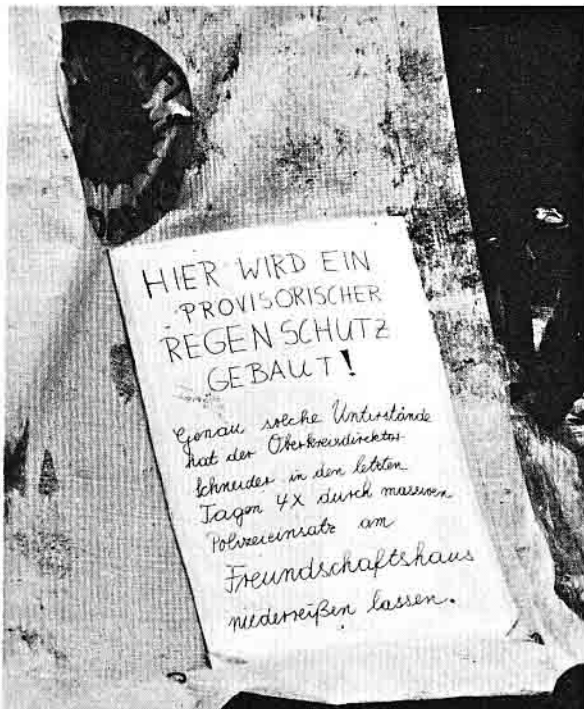 HIER WIRD EIN
PROVISORISCHER
REGENSCHUTZ
GEBAUT!
Genau solche Unterstände
hat der Oberkreisdirektor
Schneider in den letzten
Tagen 4x durch massiven
Polizeieinsatz am
Freundschaftshaus
niederreißen lassen.